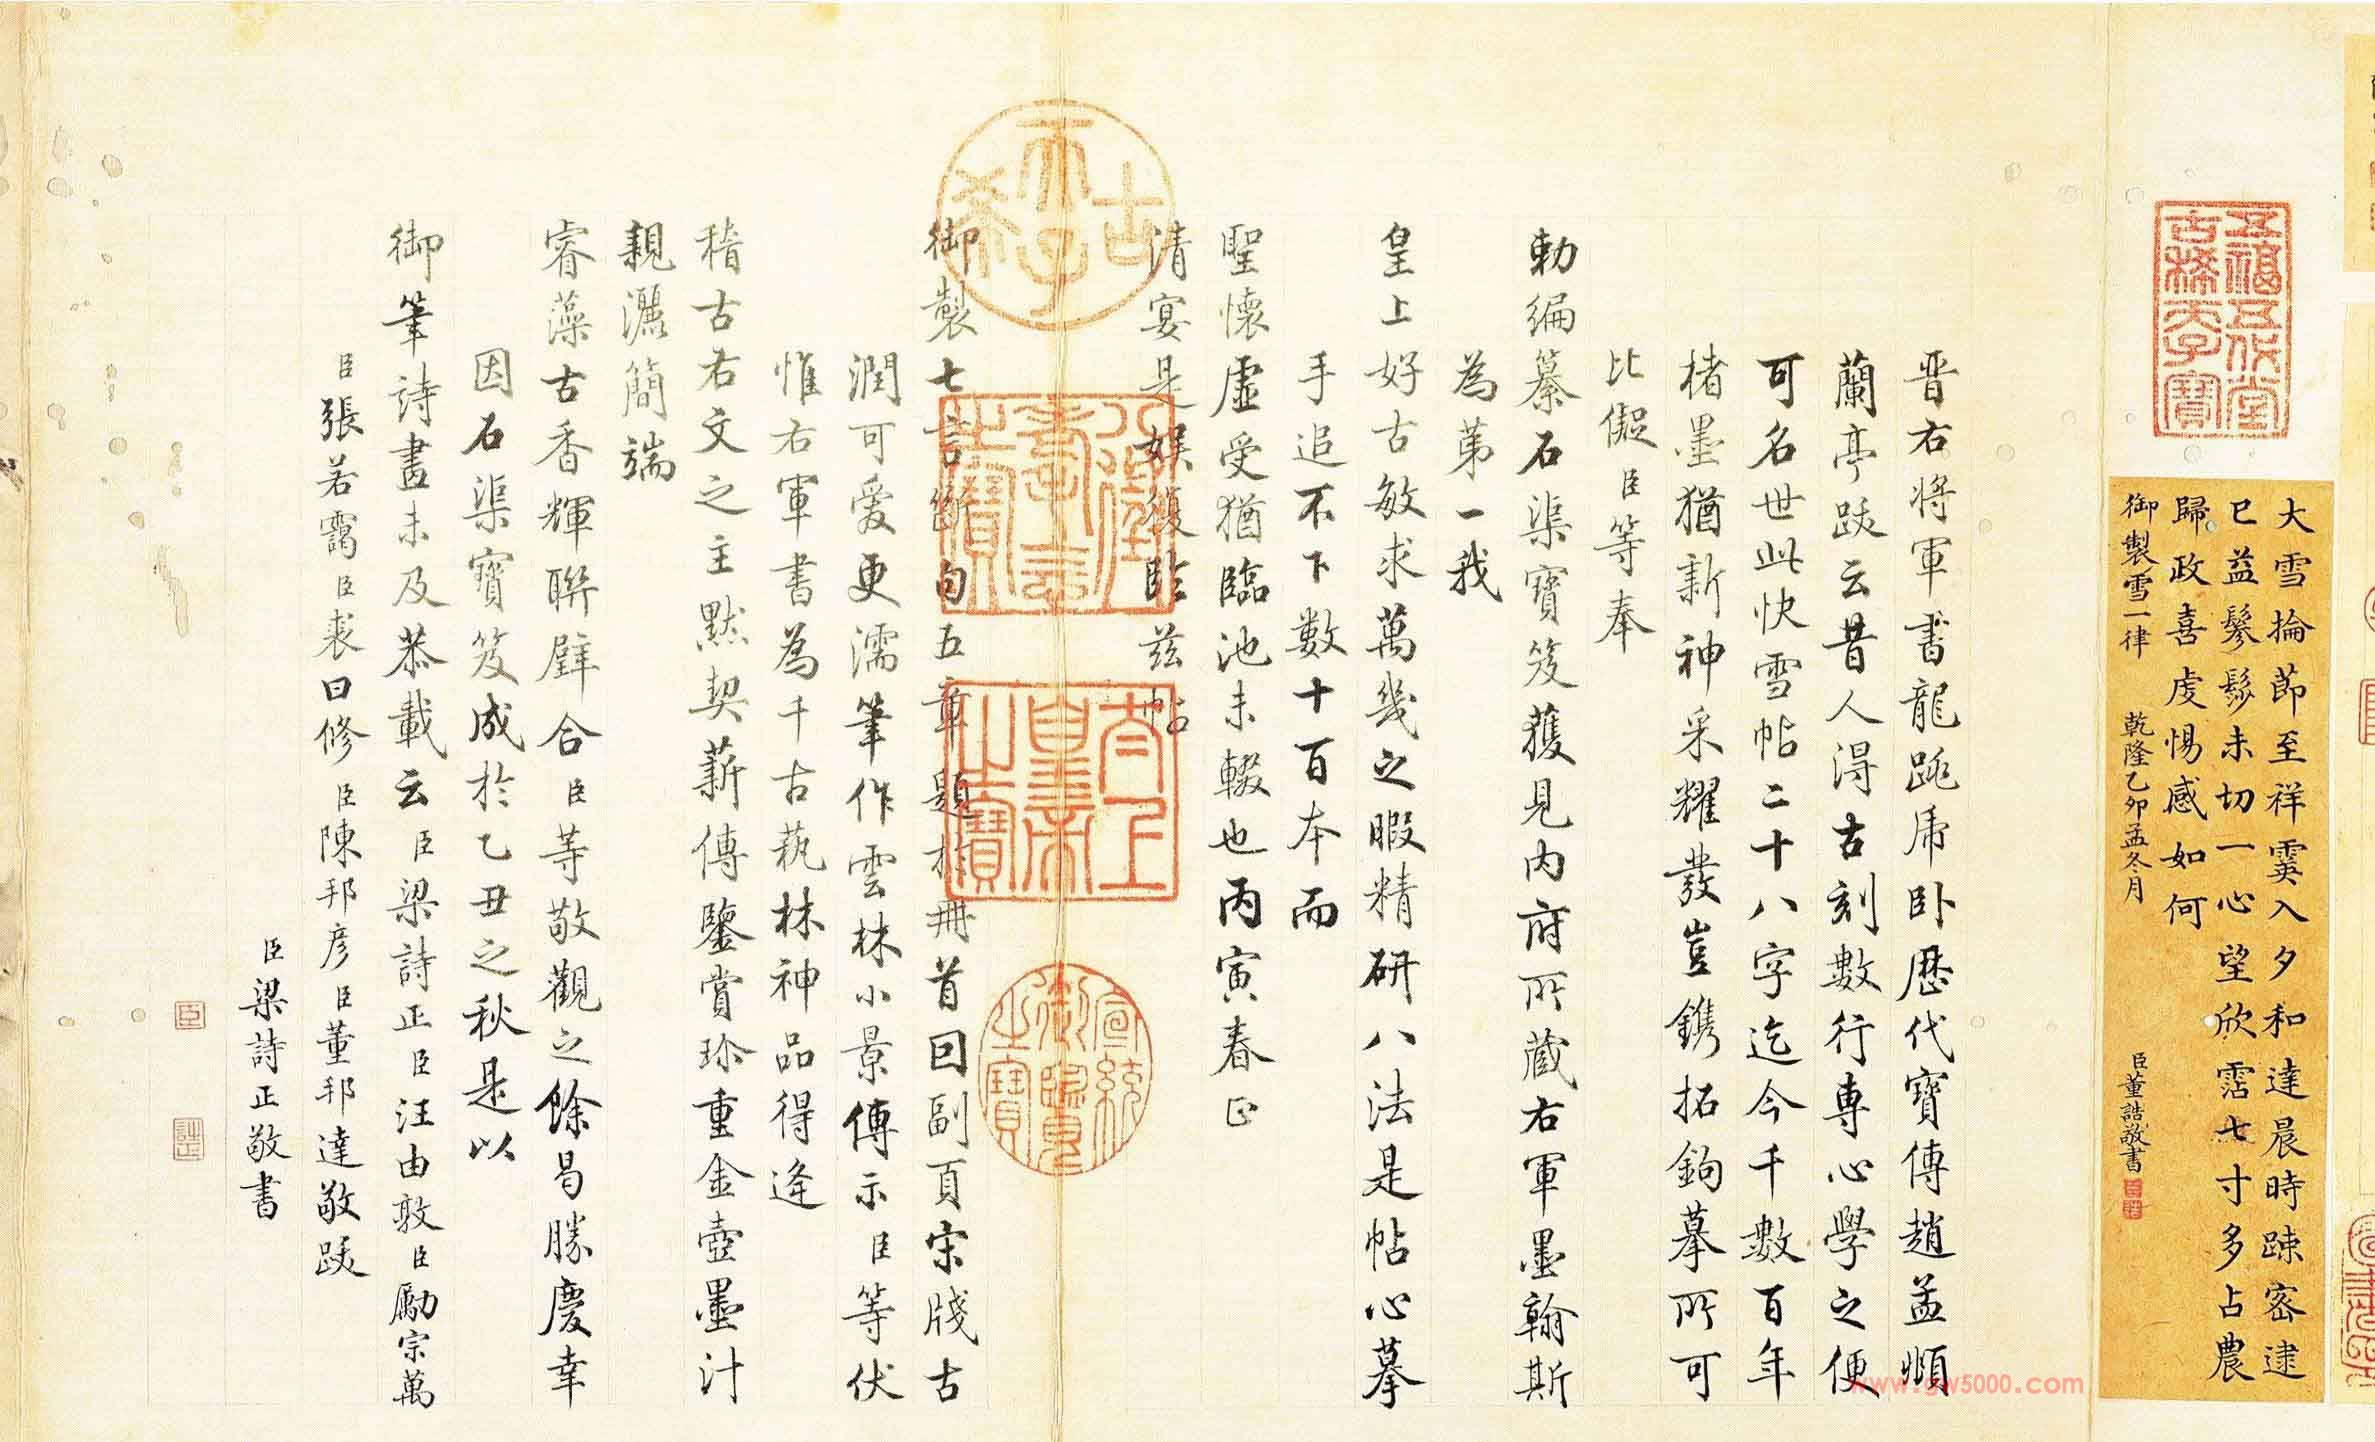 大雪掄節至祥霙入夕和達晨時踈密逮
巳益鬖鬖未切一心望欣霑七寸多占農
歸政喜虔惕感如何
御製雪一律 乾隆乙卯孟冬月 臣董誥敬書
五福五代堂
古稀天子寶
晋右將軍書龍跳乕卧歴代寳傳趙孟頫
蘭亭跋云昔人得古刻數行專心學之便
可名世此快雪帖二十八字迄今千數百年
楮墨猶新神采耀發豈鐫拓鉤摹所可
比儗臣等奉
勅編纂石渠寳笈獲見内府所藏右軍墨翰斯
為第一我
皇上好古敏求萬幾之暇精研八法是帖心摹
手追不下數十百本而
聖懷虛受猶臨池未輟也丙寅春正
清宴是娛復臨茲帖
古希天子
八徵耄念之寶
太上皇帝之寶
宣統御覽之寶
御製七言斷句五章題於冊首囙副頁宋牋古
潤可愛更濡筆作雲林小景傳示臣等伏
惟右軍書為千古蓺林神品得逢
稽古右文之主黙契薪傳鑒賞珎重金壺墨汁
親灑簡端
睿藻古香輝聯璧合臣等敬觀之餘曷勝慶幸
因石渠寳笈成於乙丑之秋是以
御筆詩畫未及恭載云臣梁詩正臣汪由敦臣勵宗萬
臣張若靄臣裘曰修臣陳邦彦臣董邦達敬跋
臣梁詩正敬書
臣
詩正
www.gw5000.com